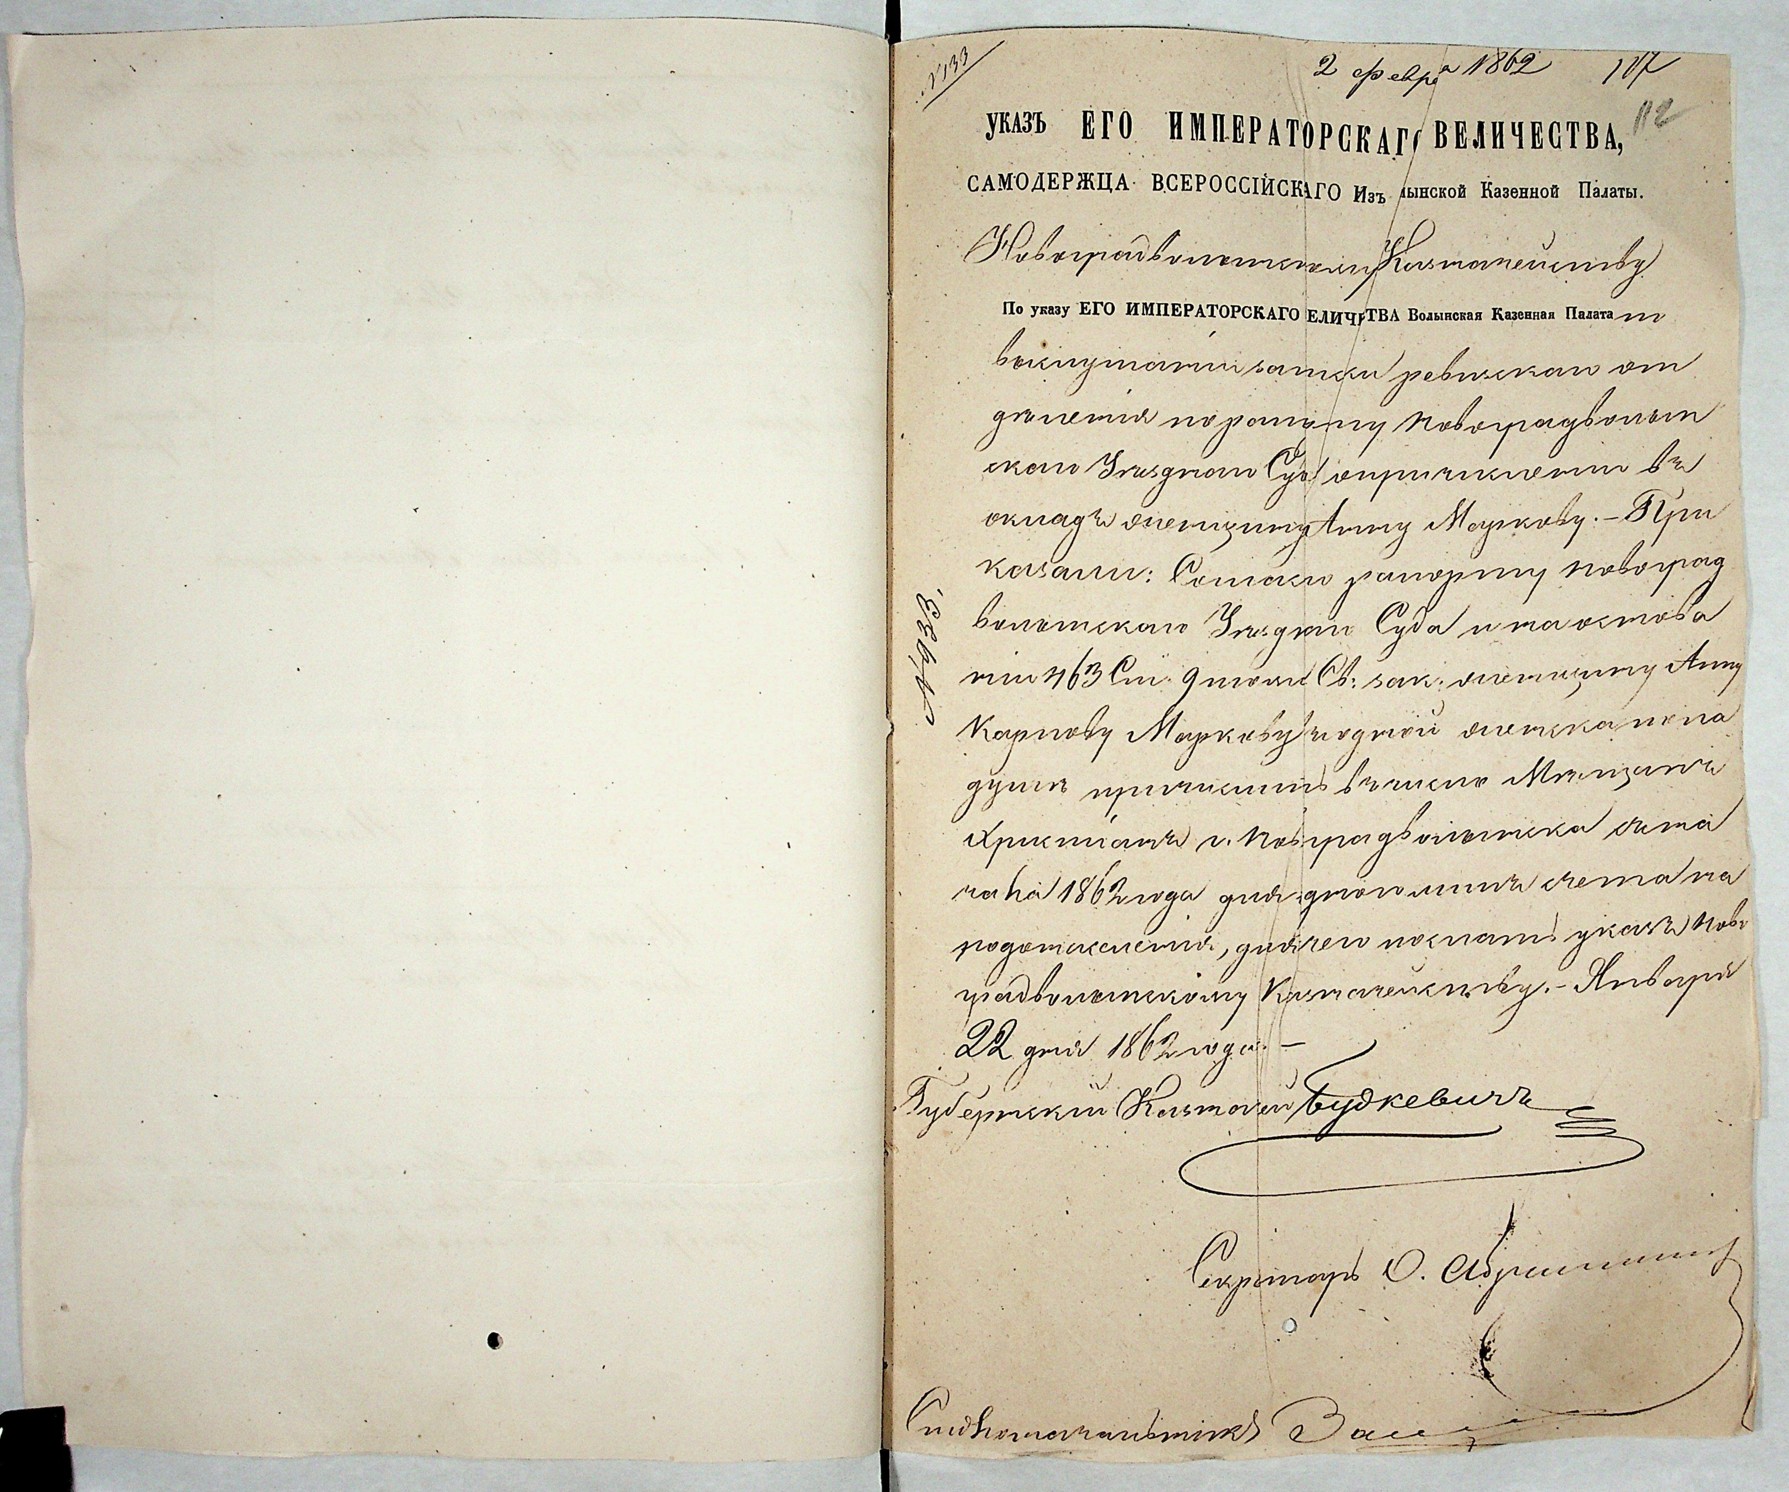 № 133
2 февра 1862
112
УКАЗЪ ЕГО ИМПЕРАТОРСКАГО ВЕЛИЧЕСТВА,
САМОДЕРЖЦА ВСЕРОССІЙСКАГО Изъ лынской Казенной Палаты.
Новоградволынскому Казначейству
По указу ЕГО ИМПЕРАТОРСКАГО ЕЛИЧЕСТВА Волынская Казенная Палата по
выслушаніи записки ревизскаго от
дѣленія по рапорту Новоградволын
скаго Уѣзднаго Суда о причисленіи въ
окладъ Анну Маркову. – При
казали: Согласно рапорту Новоград
волынскаго Уѣзднаго Суда и на основа
ніи 463 Ст. 9 тома Св: зак: Анну
Карпову Маркову по
душѣ причислить въ число Мѣщанъ
Христіанъ г. Новградволынска съ на
чала 1862 года для одного лишь счета на
родонаселенія, для чего послать указъ Ново
градволынскому Казначейству. – Января
22 дня 1862 года. –
Губернскій Казначей Будкевичъ
Секретарь О.
Столоначальникъ